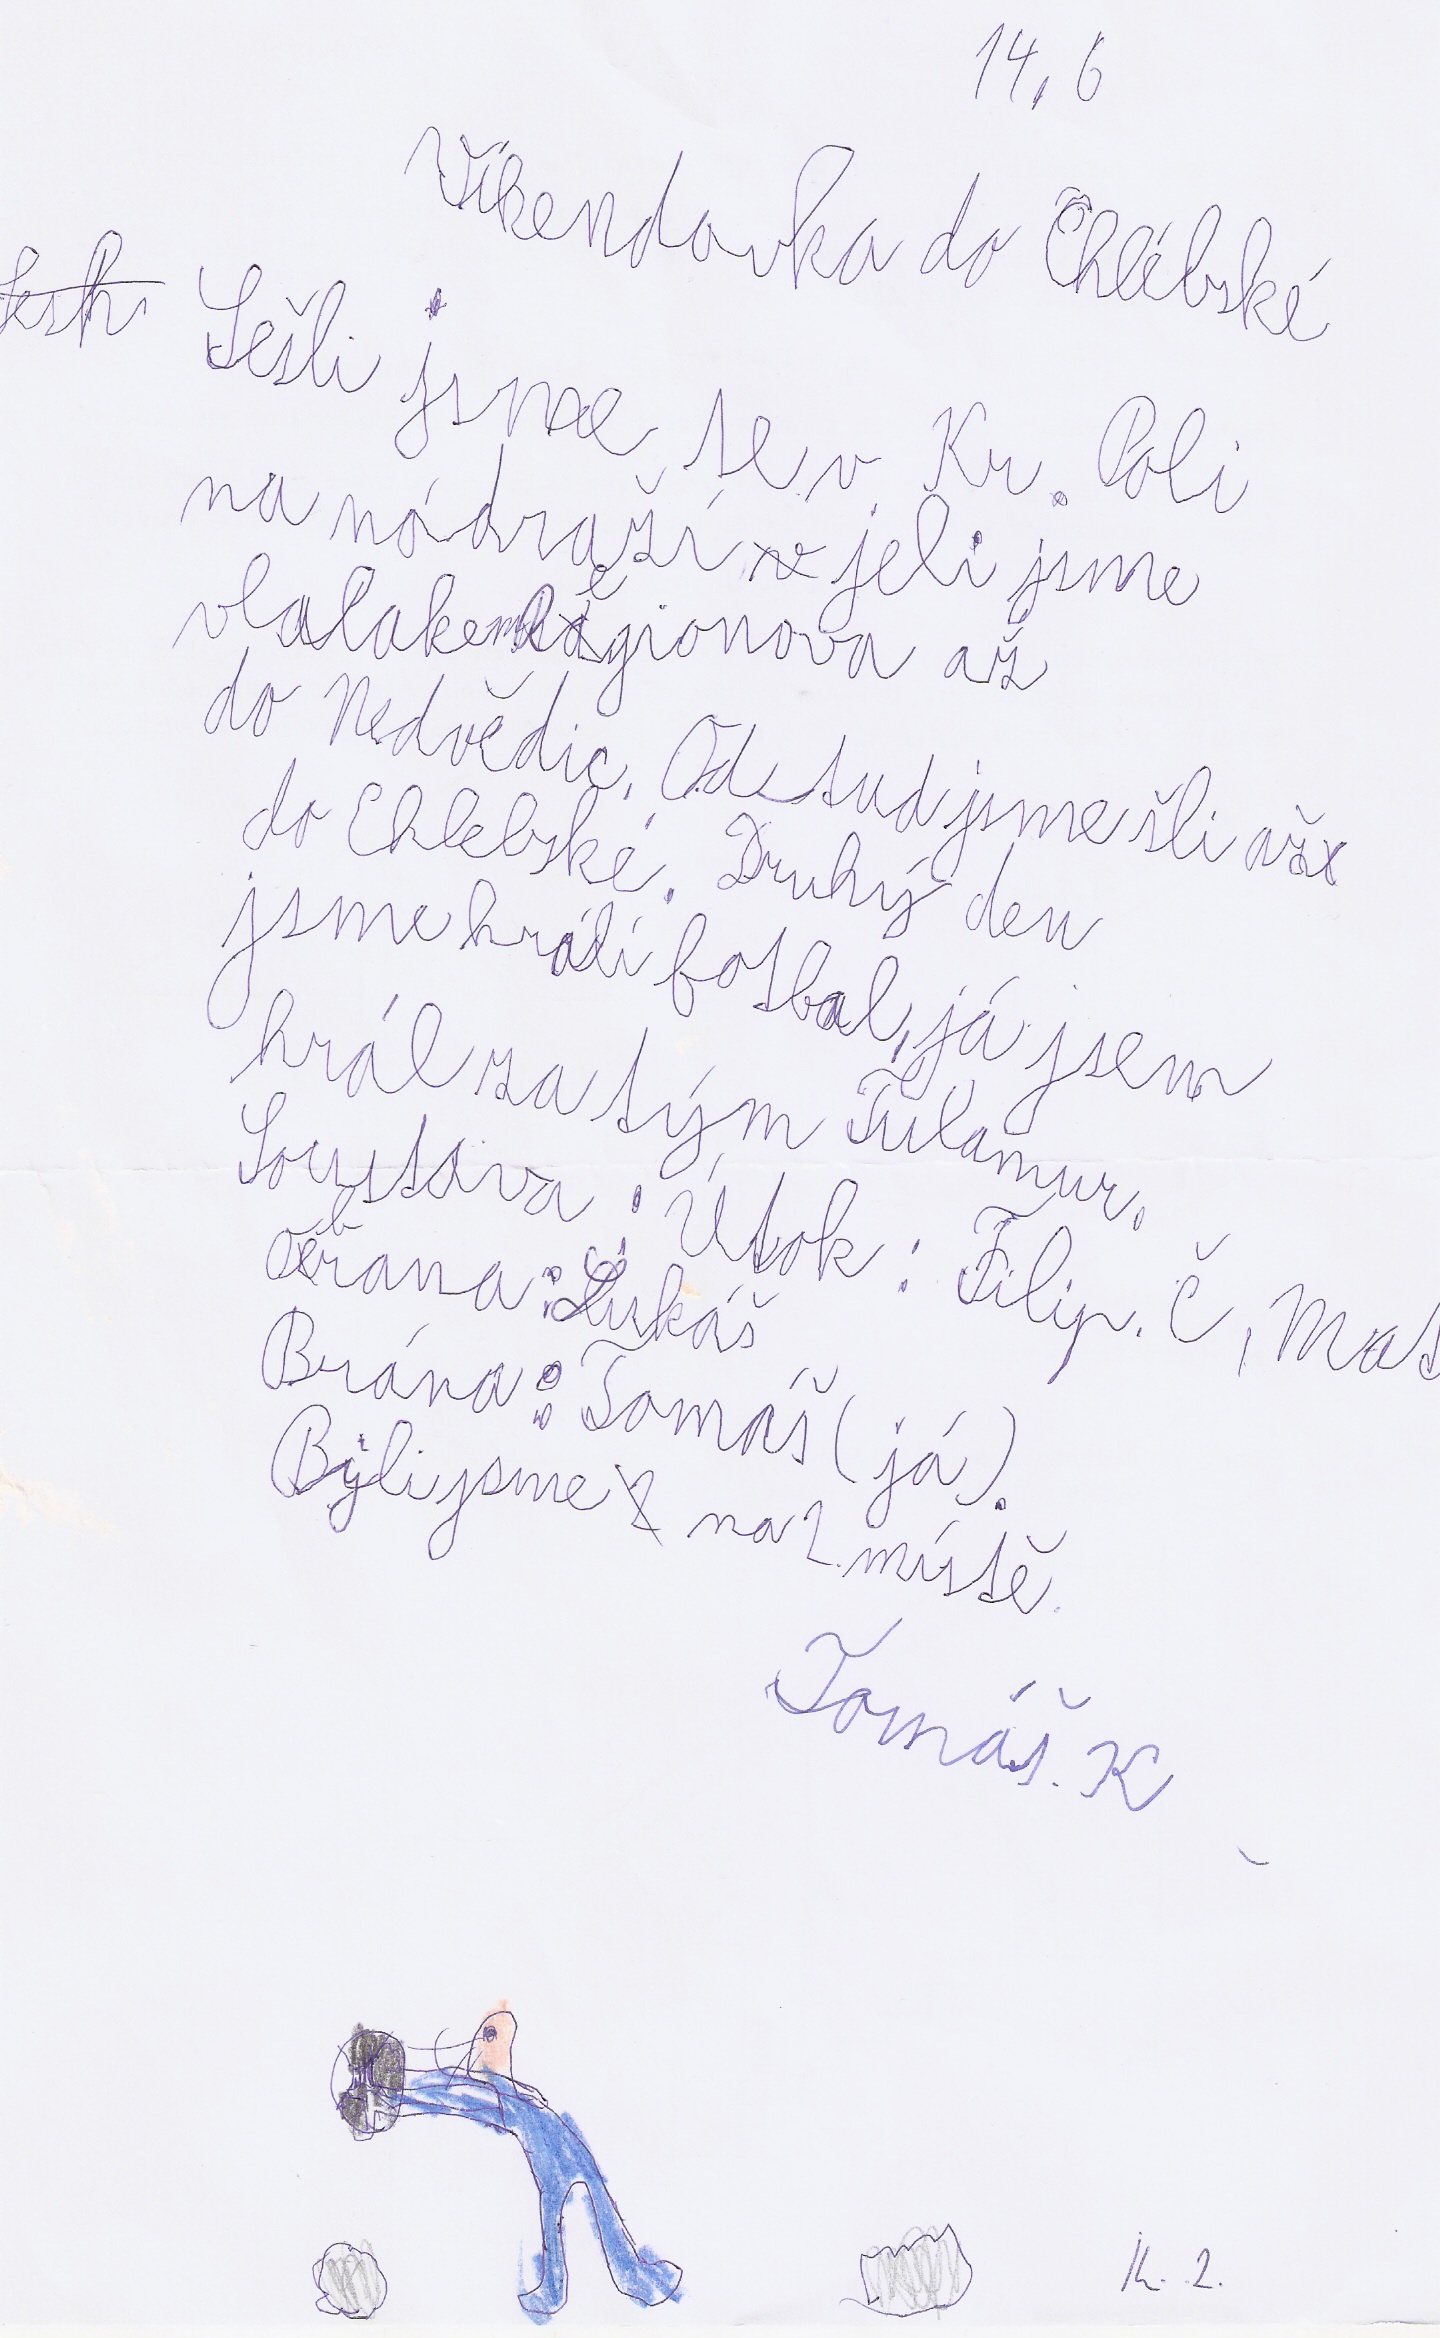 14. 6
Víkendovka do Chlébské
Sešli jsme se v Kr. Poli
na nádraží jeli jsme
vlakem Regionova až
do Nedvědic. Od tud jsme šli až
do Chlebské. Druhý den
jsme hráli fotbal, já jsem
hrál za tým Tulamur.
Soustava: Útok: Filip. Č, Mat
obrana: Lukáš
Brána: Tomáš (já).
Byli jsme na 2. místě.
Tomáš. K
K. 2.